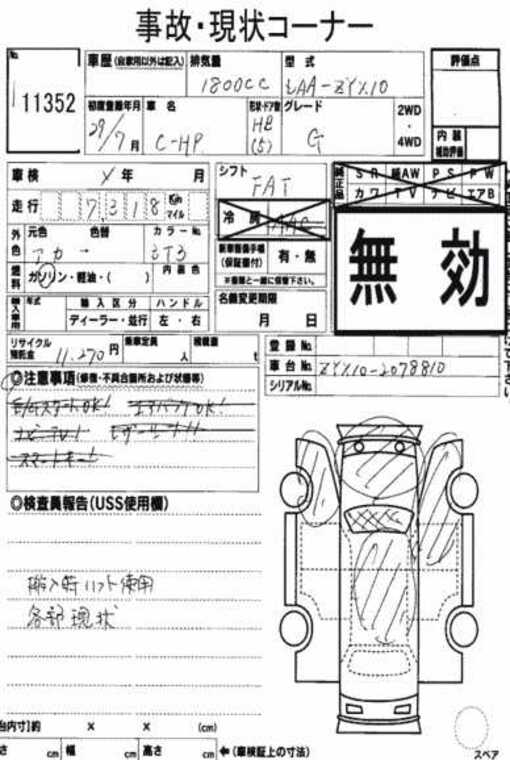 事故・現状コーナー
No.
11352
車歴(自家用以外は記入)
排気量
型式
評価点
1800CC
LAA-ZYX10
初度登録年月
車名
形状・ドア数
グレード
2WD
・
4WD
29/7月
C-HP
HB
(5)
G
内装
補助評価
車検
年
月
シフト
FAT
純正品
SR
純AW
PS
PW
カワ
TV
ナビ
エアB
走行
7,318
Km
マイル
冷房
AAC
外色
元色
色替
カラーNo.
アカ
3T3
新車整備手帳
(保証書付)
有・無
※書類と一緒に保管下さい。
無効
燃料
ガソリン・軽油・( )
内装色
名義変更期限
月 日
輸入車用
年式
輸入区分
ハンドル
ディーラー・並行
左・右
リサイクル
預託金
11,270円
乗車定員
人
積載量
t
登録No.
車台No.
ZYX10-2078810
シリアルNo.
◎注意事項(修復・不具合箇所および状態等)
エアバックOK!
スマートキー!
◎検査員報告(USS使用欄)
搬入時リフト使用
各部現状
台内寸]約 × × (cm)
さ cm 幅 cm 高さ cm
←(車検証上の寸法)
スペア